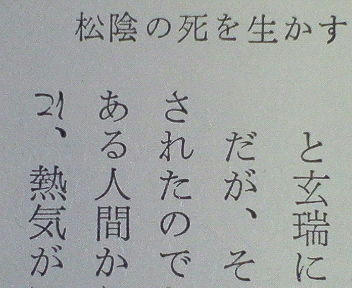 松陰の死を生かす
と玄瑞に
だが、そ
されたので
ある人間か
、熱気が